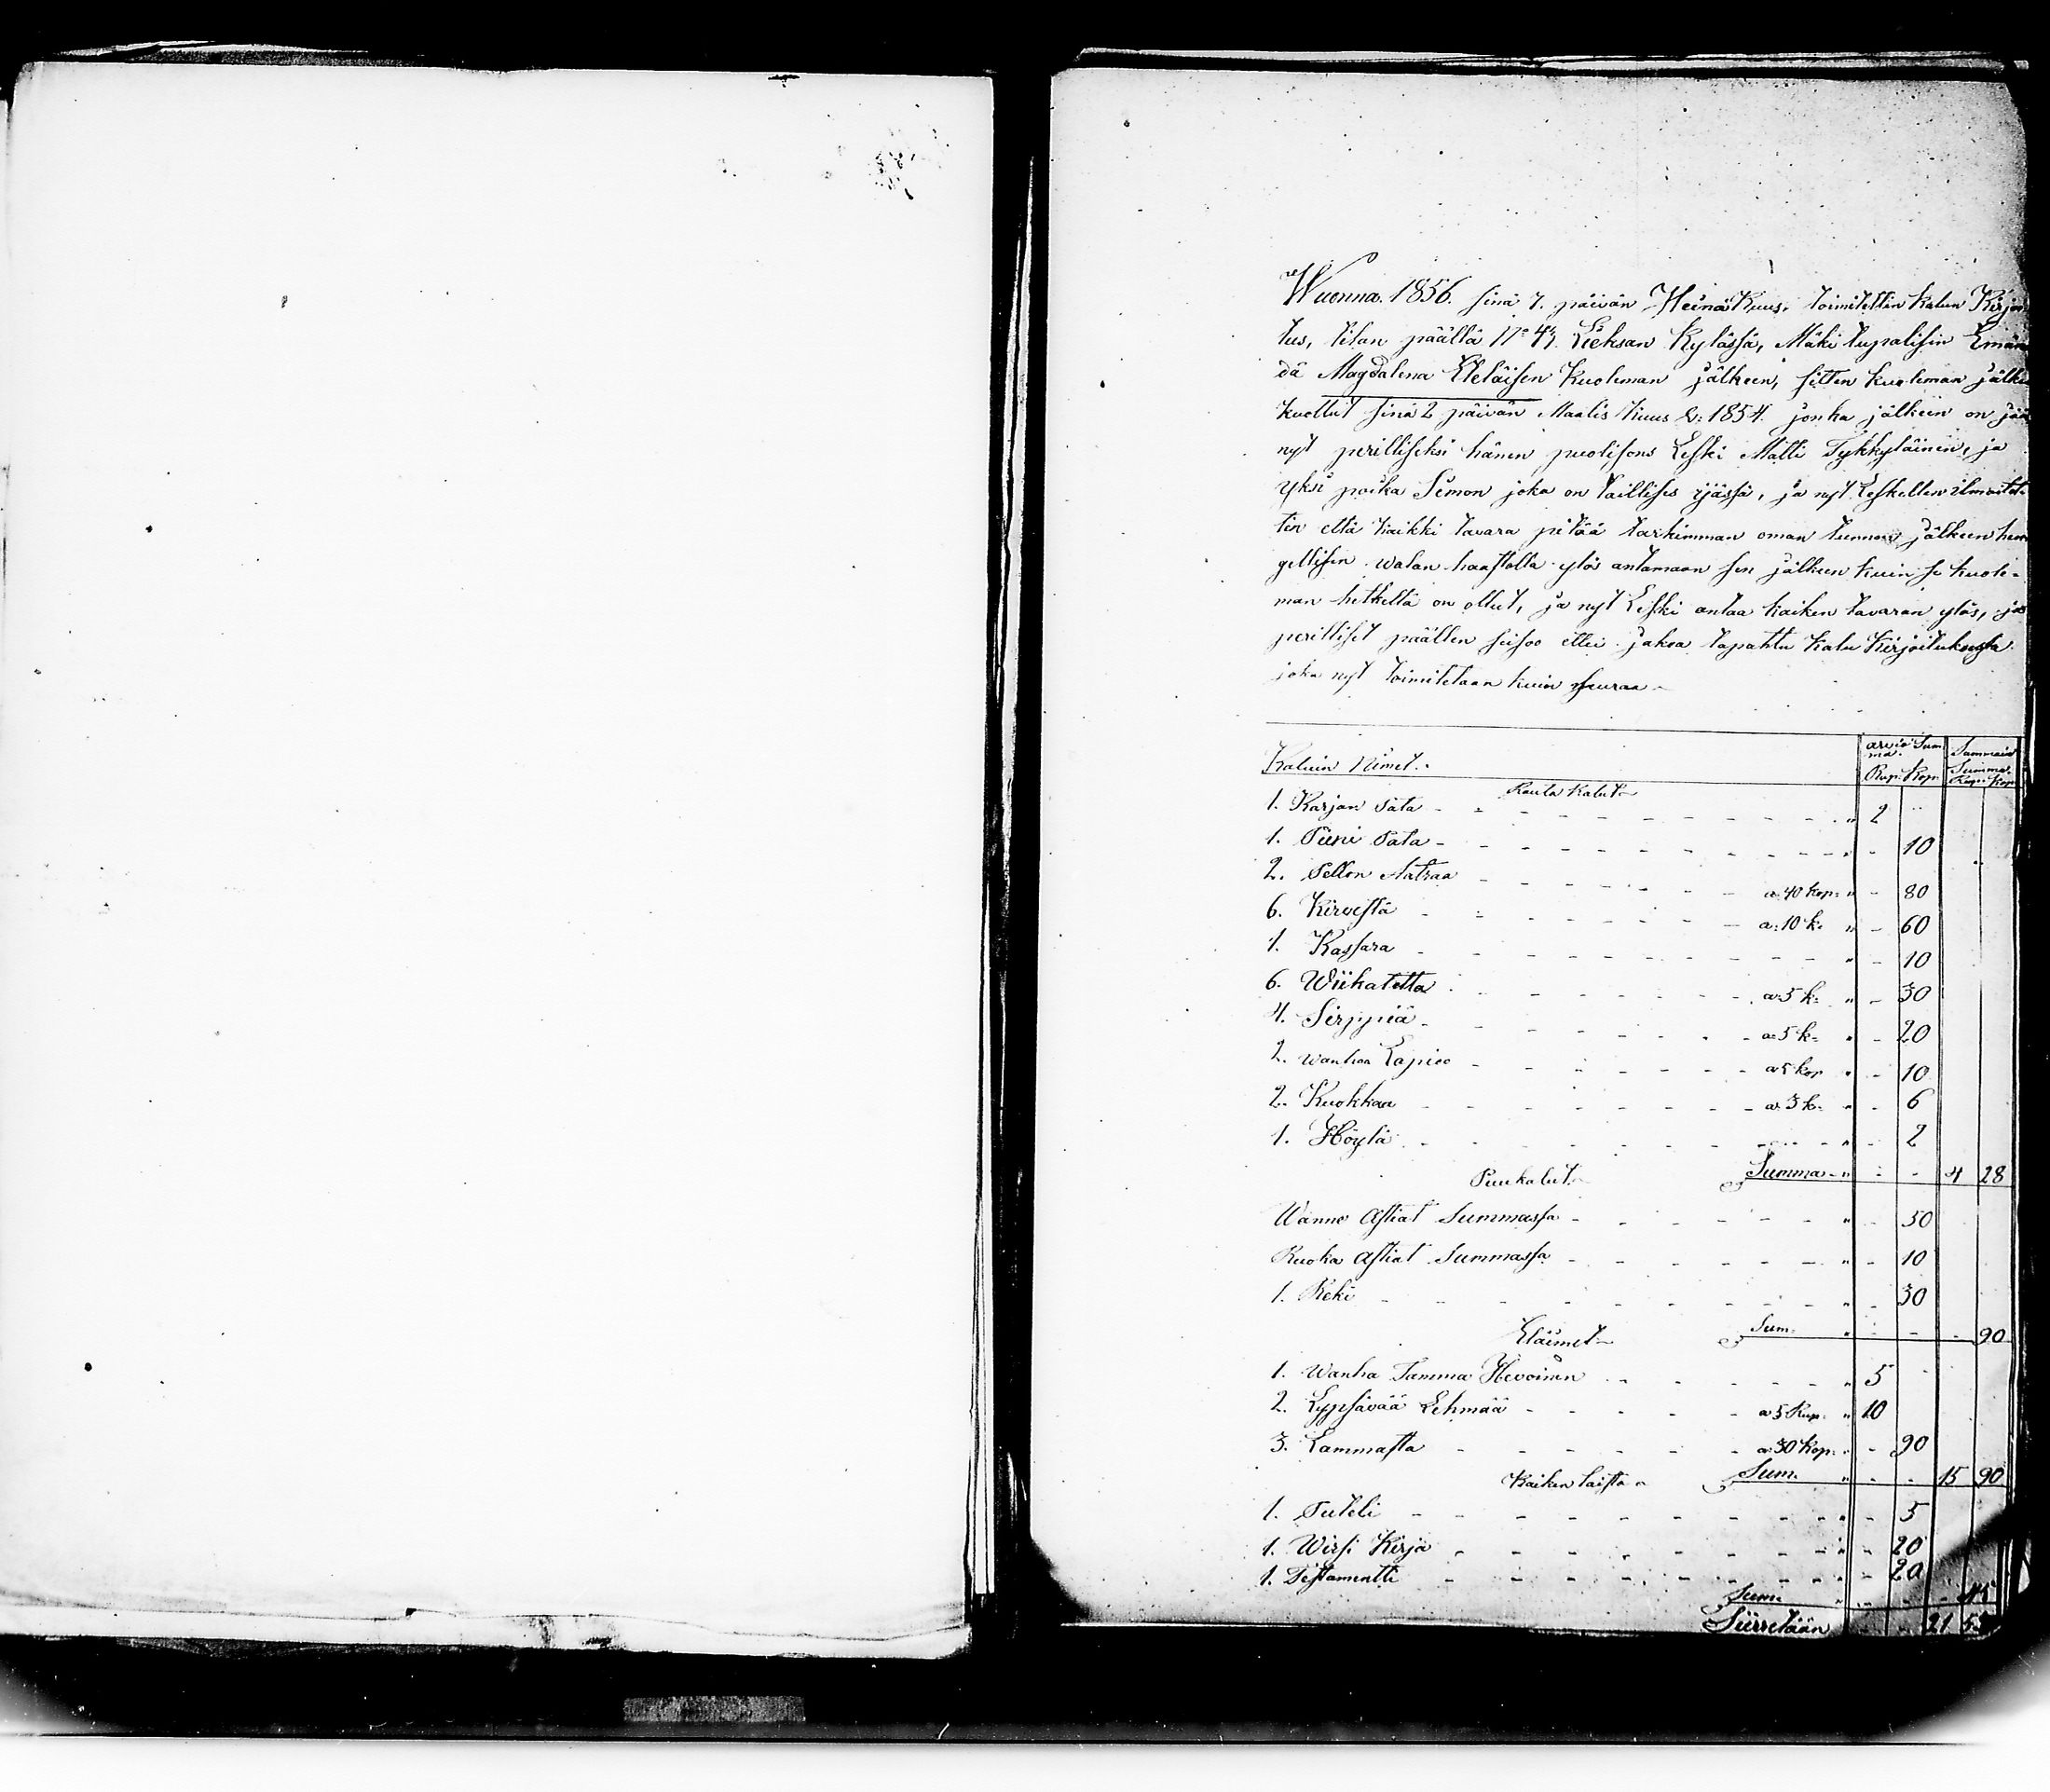 Wuonna. 1856. sinä 7. päivän Heinä Kuus. toimitettin Kalun Kirjoi
tus, tilan päällä N:o 43. Lieksan Kylässä, Mäki tupalisen Emän
dä Magdalena Eteläisen Kuoleman jälkeen, sitten kuoleman jälke
kuollut sinä 2 päivän Maalis kuus v: 1854. jonka jälkein on jää
nyt perilliseksi hänen puolisons Leski Matti Tykkyläinen, ja
yksi poika Simon joka on laillises ijässä, ja nyt Leskellen ilmoitet
tin että kaikki tavara pitää tarkimman oman tunnon jälkeen hen
gellisen walan haastolla ylös antamaan sen jälkeen kuin se kuole-
man hetkellä on ollut, ja nyt Leski antaa kaiken tavaran ylös, ja
perilliset päällen seisoo ettei jakoa tapahtu Kalu Kirjoituksesta
joka nyt toimitetaan kuin seuraa
Kaluin Nimet. arvio Summa. Summain Summa.
Rup. Kop. Rup. Kop
Rauta Kalut
1. Karjan Pata " 2 "
1. Pieni Pata " - 10
2. Pellon Aatraa a 40 kop: " - 80
6. Kirvestä a: 10 k: " - 60
1. Kassara " - 10
6. Wiikatetta a: 5 k: " - 30
4. Sirppiä a: 5 k: " - 20
2. wanhaa Lapioo a 5 kop " - 10
2. Kuokkaa a: 3 k: " - 6
1. Höylä " - 2
Puukalut Summa " - - 4 28
Wanno Astiat Summassa " - 50
Ruoka Astiat Summassa " - 10
1. Reki " - 30
Eläimet Sum: " - - - 90
1. Wanha Tamma Hevoinen " 5 -
2. Lypsävää Lehmää a 5 Rup: " 10
3. Lammasta a: 30 Kop: " - 90
Kaiken laista Sum: " - - 15 90
1. Tuteli " - 5
1. Wirsi Kirja " - 20
1. Testamentti " - 20
Sum: " - - - 45
Siirretään - - 21 53